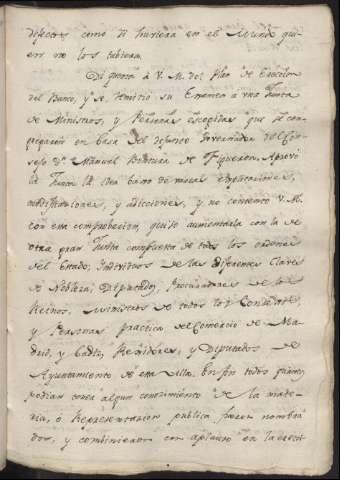 defectos como si huviera en el Mundo quien
no los tubiera.
Di quenta à V. M. del Plan de Ereccion
del Banco, y se remitio su Examen a una Junta
de Ministros, y Personas escogidas que se con
gregaron en casa del difunto Governador del Con
sejo Dn. Manuel Ventura de Figueroa. Aprovó
la Junta la idea bajo de varias explicaciones,
modificaciones, y adicciones, y no contento V. M.
con esta comprobacion, quiso aumentarla con la de
otra gran Junta compuesta de todos los ordenes
del Estado; Individuos de las diferentes Clases
de Nobleza; Diputados, Procuradores de los
Reinos, Ministros de todos los Consejos,
y Personas practicas del Comercio de Ma
drid, y Cadiz, Regidores, y Diputados de
Ayuntamiento de esta Villa. En fin todos quantos
podian tener algun conocimiento de la mate
ria, ó Representacion publica fueron nombra
dos, y combinieron con aplauso en la erecci